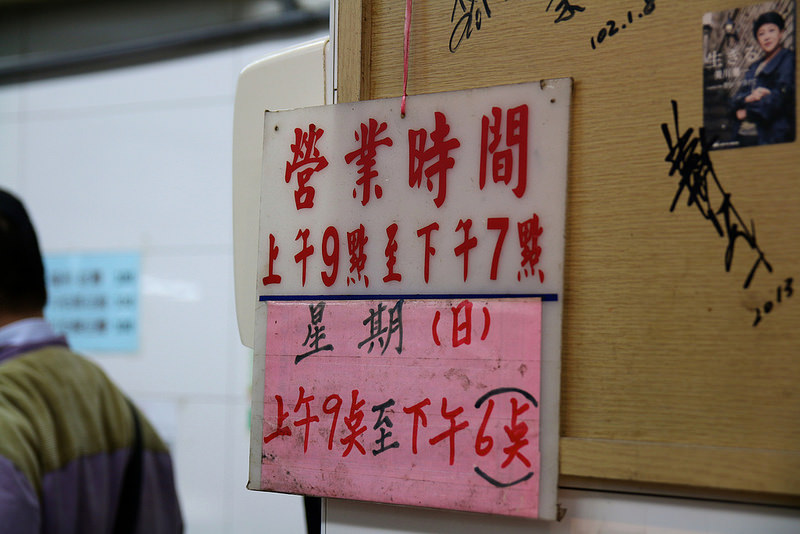 營業時間
上午9點至下午7點
星期(日)
上午9点至下午(6点)
102.1.8
生きる
2013